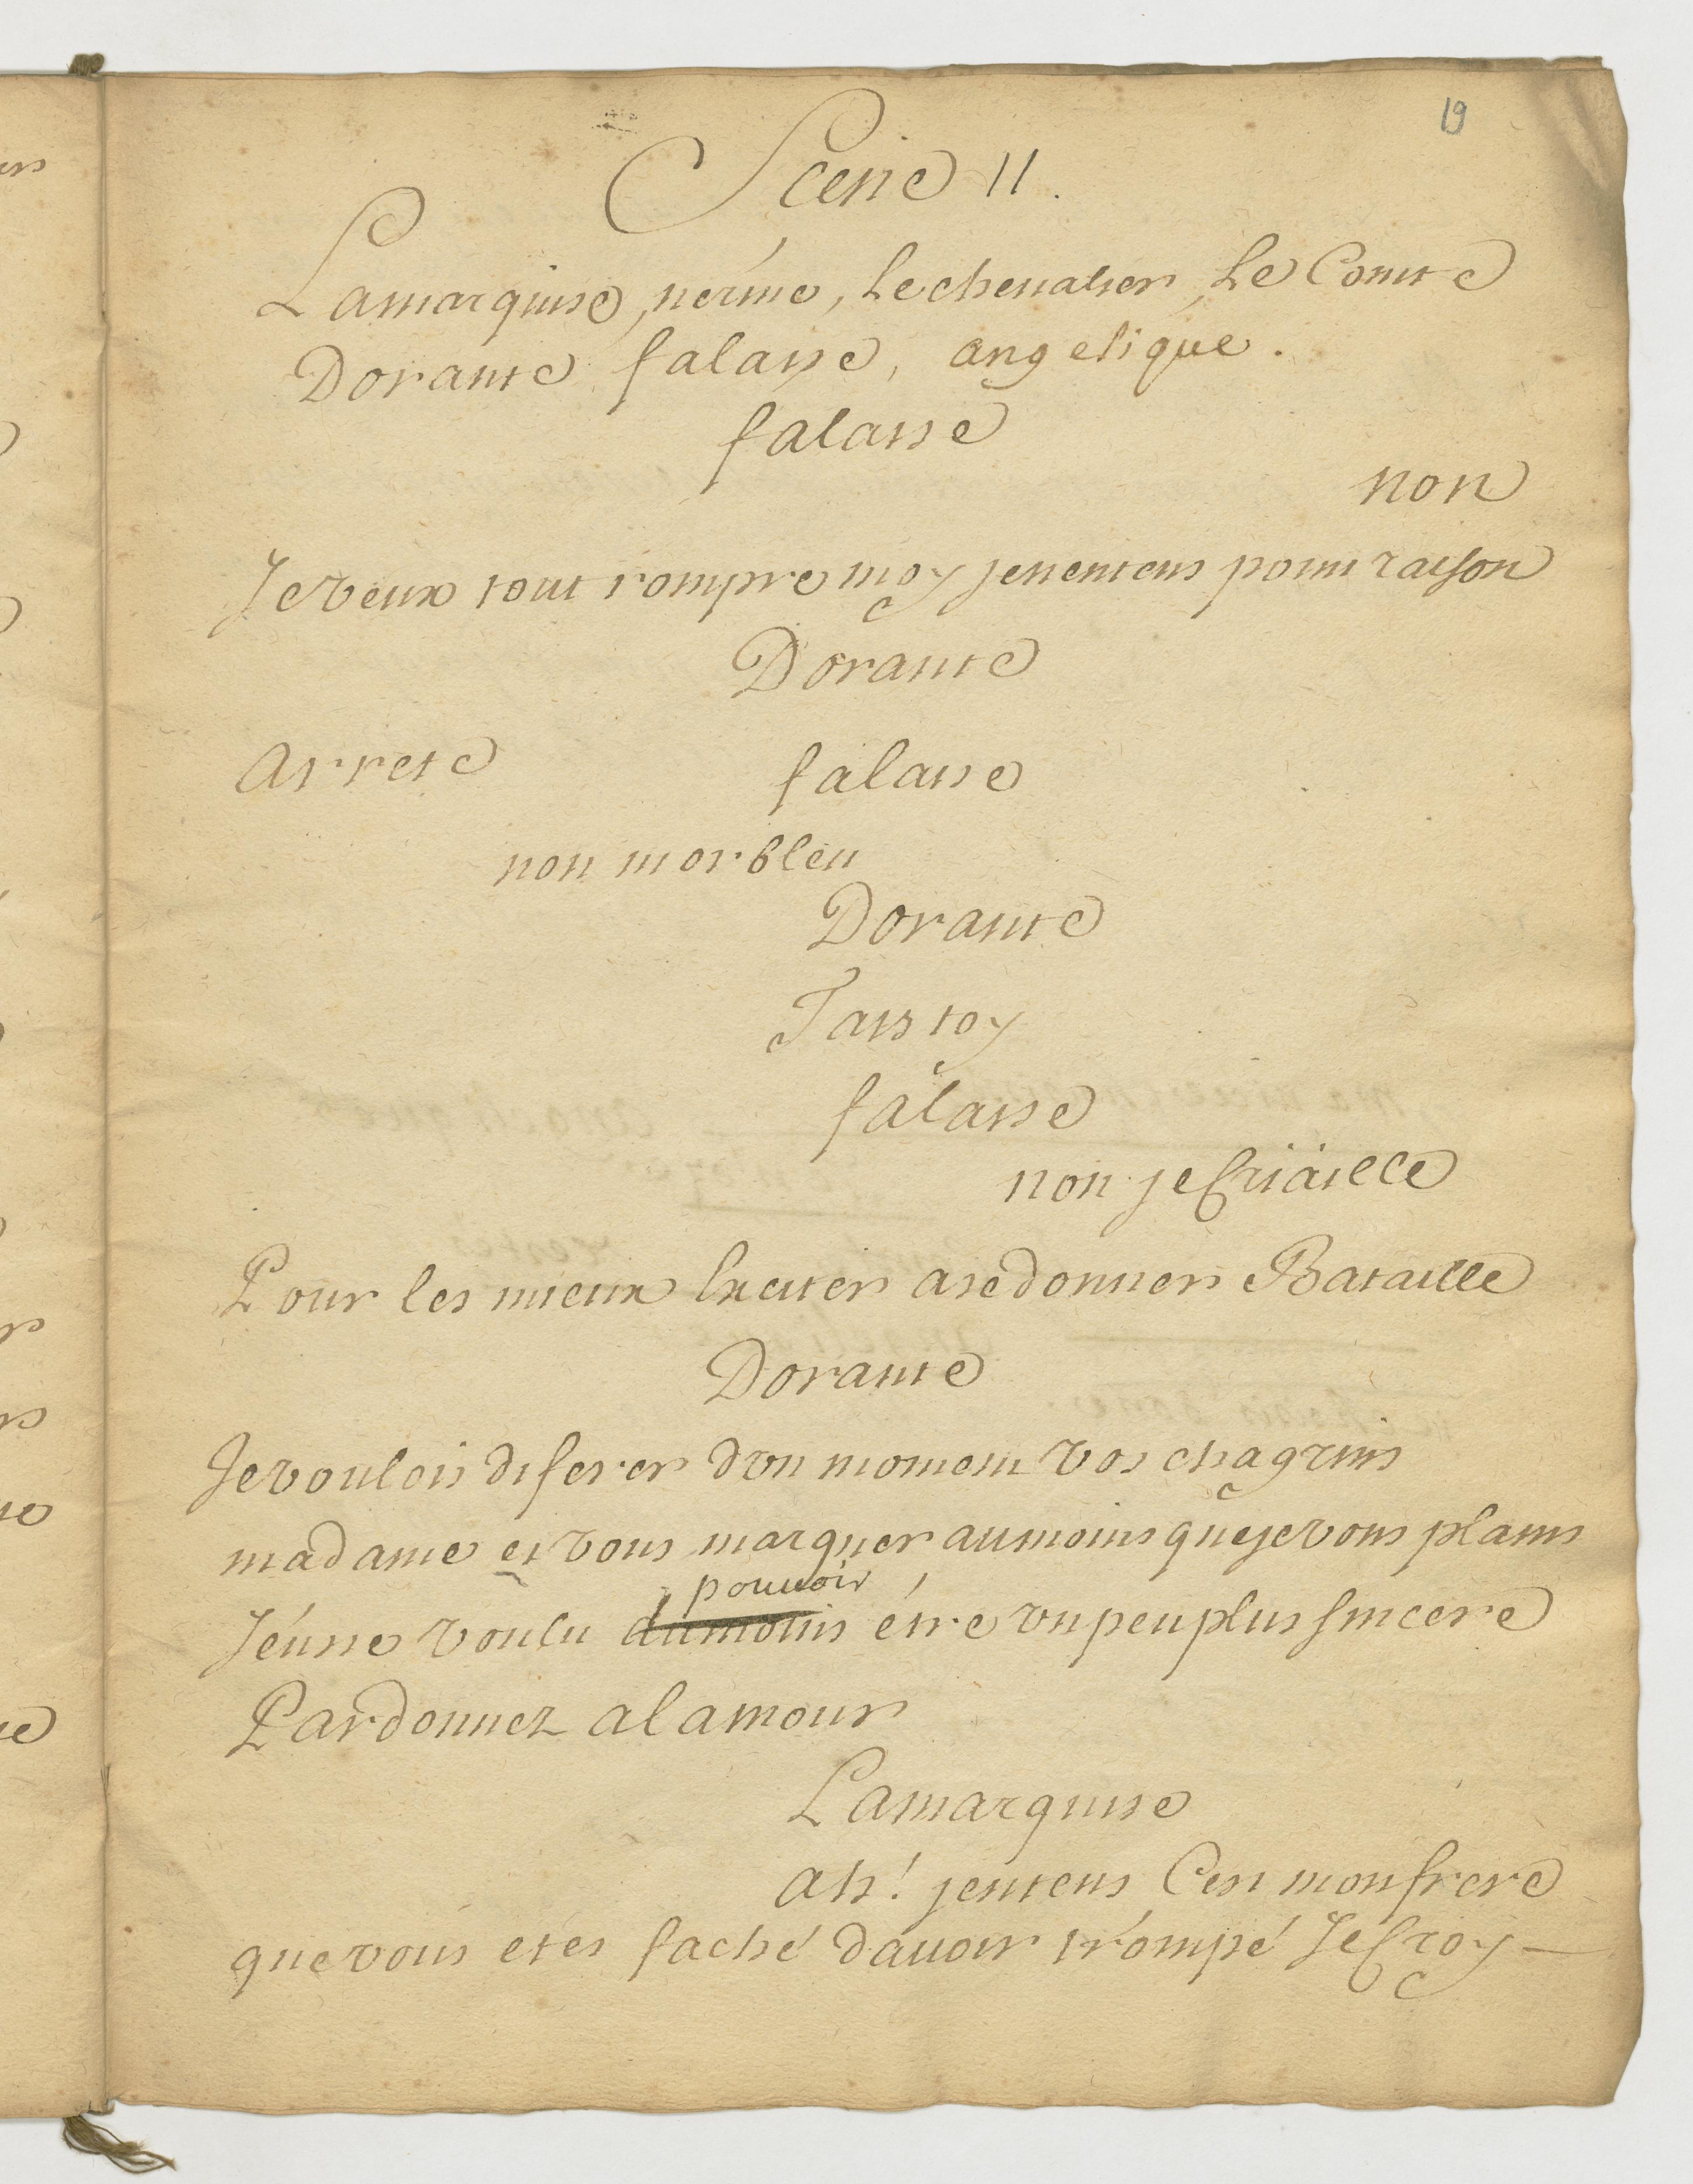 19
Scene 11.
Lamarquise, nerine, Le chevalier, Le Comte
Dorante falaise, angelique.
falaise
non
Je veux tout rompre moy je nentens point raison
Dorante
Arrete
falaise
non morbleu
Dorante
Tais toy
falaise
non je Criaille
Pour les mieux Exciter a se donner Bataille
Dorante
Je voulois diferer d'un moment vos chagrins
madame et vous marquer au moins que je vous plains
pouvoir
J'eusse voulu dumoins étre un peu plus sincere
Pardonnez a lamour
Lamarquise
ah! jentens Cest mon frere
que vous etes faché d'auoir trompé Je Croy —